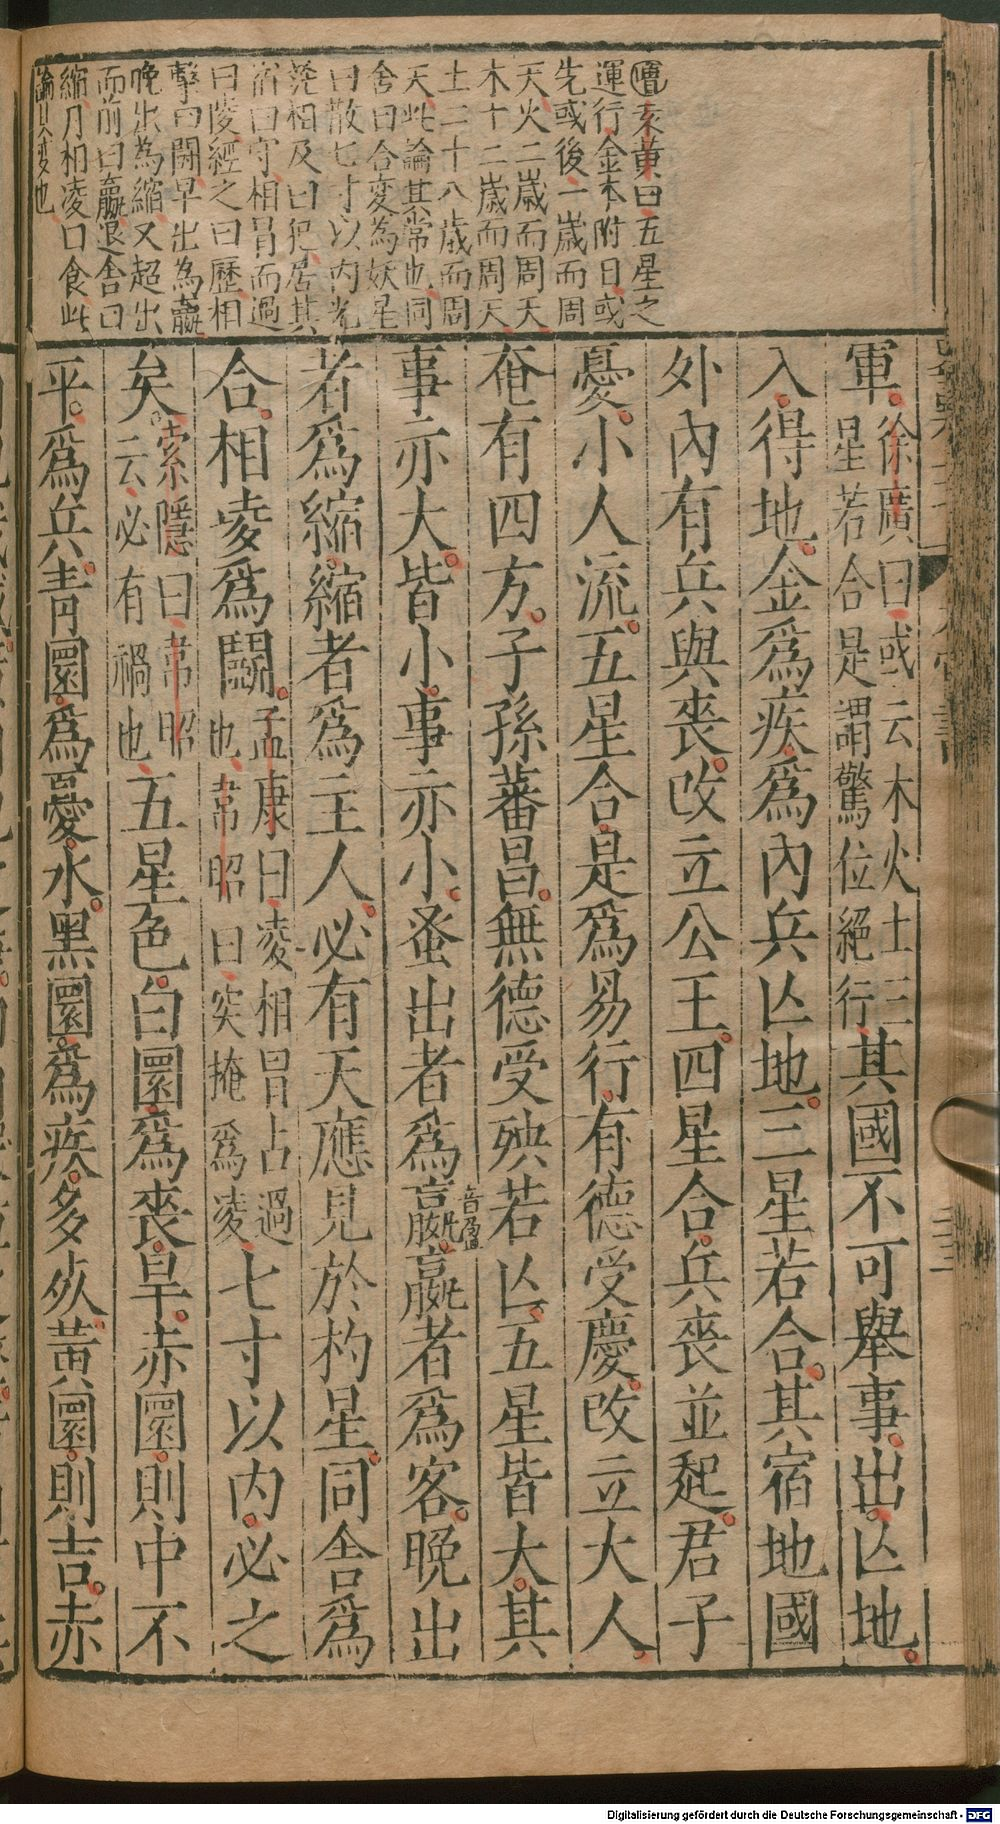 增茅黃曰五星之
運行金水附日或
先或後一歲而周
天火二歲而周天
木十二歲而周天
土二十八歲而周
天此論其常也同
舍曰合変為妖星
曰散七寸以内光
芒相及曰犯居其
宿曰守相冐而過
曰陵經之曰歷相
擊曰鬪早出為贏
晚出為縮又超出
而前曰贏退舍曰
縮月相凌曰食此
論其變也
軍徐廣曰或云木火土三星若合是謂驚位絕行其國不可舉事出亾地
入得地金爲疾爲內兵亾地三星若合其宿地國
外內有兵與喪改立公王四星合兵喪並起君子
憂小人流五星合是爲易行有德受慶改立大人
奄有四方子孫蕃昌無德受殃若亾五星皆大其
事亦大皆小事亦小蚤出者爲贏音盈贏者爲客晚出
者爲縮縮者爲主人必有天應見於杓星同舍爲
合相凌爲鬪孟康曰凌相冒占過也韋昭曰突掩爲凌七寸以内必之
矣索隱曰韋昭云必有禍也五星色白圜爲喪旱赤圜則中不
平爲兵青圜爲憂水黑圜爲疾多死黃圜則吉赤
Digitalisierung gefördert durch die Deutsche Forschungsgemeinschaft - DFG